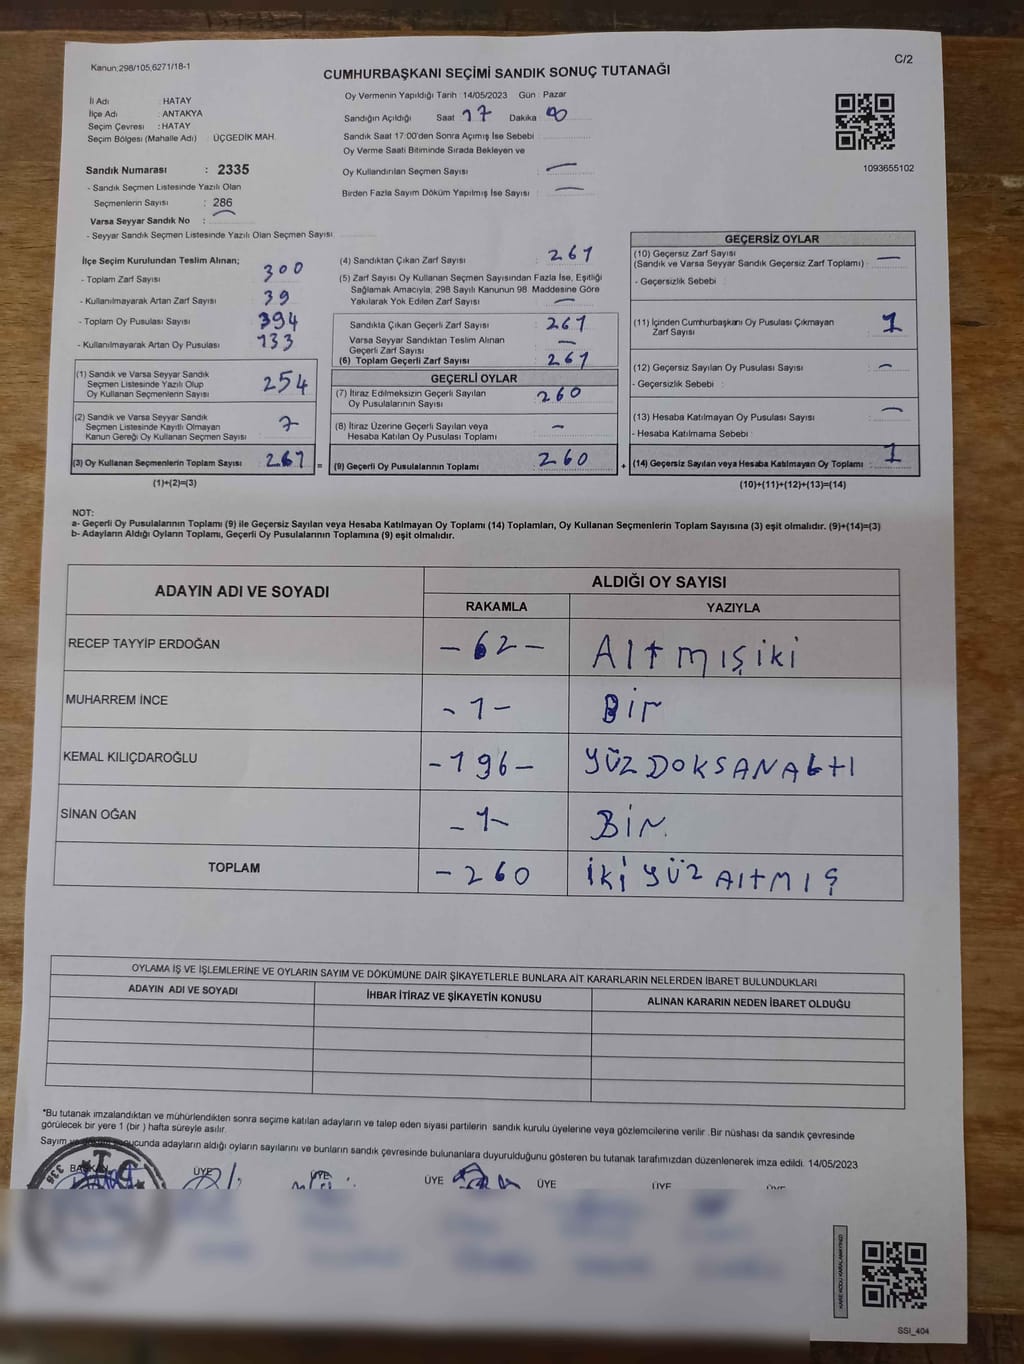 Kanun:298/105,6271/18-1
C/2
CUMHURBAŞKANI SEÇİMİ SANDIK SONUÇ TUTANAĞI
İl Adı : HATAY
İlçe Adı : ANTAKYA
Seçim Çevresi : HATAY
Seçim Bölgesi (Mahalle Adı) : ÜÇGEDİK MAH.
Sandık Numarası : 2335
- Sandık Seçmen Listesinde Yazılı Olan
Seçmenlerin Sayısı : 286
Varsa Seyyar Sandık No : —
- Seyyar Sandık Seçmen Listesinde Yazılı Olan Seçmen Sayısı:
Oy Vermenin Yapıldığı Tarih : 14/05/2023 Gün : Pazar
Sandığın Açıldığı Saat 17 Dakika : 00
Sandık Saat 17:00'den Sonra Açımış İse Sebebi :
Oy Verme Saati Bitiminde Sırada Bekleyen ve
Oy Kullandırılan Seçmen Sayısı : —
Birden Fazla Sayım Döküm Yapılmış İse Sayısı : —
1093655102
İlçe Seçim Kurulundan Teslim Alınan;
- Toplam Zarf Sayısı : 300
- Kullanılmayarak Artan Zarf Sayısı : 39
- Toplam Oy Pusulası Sayısı : 394
- Kullanılmayarak Artan Oy Pusulası : 133
(1) Sandık ve Varsa Seyyar Sandık
Seçmen Listesinde Yazılı Olup
Oy Kullanan Seçmenlerin Sayısı : 254
(2) Sandık ve Varsa Seyyar Sandık
Seçmen Listesinde Kayıtlı Olmayan
Kanun Gereği Oy Kullanan Seçmen Sayısı : 7
(3) Oy Kullanan Seçmenlerin Toplam Sayısı : 261 =
(1)+(2)=(3)
(4) Sandıktan Çıkan Zarf Sayısı : 261
(5) Zarf Sayısı Oy Kullanan Seçmen Sayısından Fazla İse, Eşitliği
Sağlamak Amacıyla; 298 Sayılı Kanunun 98. Maddesine Göre
Yakılarak Yok Edilen Zarf Sayısı : —
Sandıkta Çıkan Geçerli Zarf Sayısı : 261
Varsa Seyyar Sandıktan Teslim Alınan
Geçerli Zarf Sayısı : —
(6) Toplam Geçerli Zarf Sayısı : 261
GEÇERLİ OYLAR
(7) İtiraz Edilmeksizin Geçerli Sayılan
Oy Pusulalarının Sayısı : 260
(8) İtiraz Üzerine Geçerli Sayılan veya
Hesaba Katılan Oy Pusulası Toplamı : —
(9) Geçerli Oy Pusulalarının Toplamı : 260 +
GEÇERSİZ OYLAR
(10) Geçersiz Zarf Sayısı
(Sandık ve Varsa Seyyar Sandık Geçersiz Zarf Toplamı) : —
- Geçersizlik Sebebi :
(11) İçinden Cumhurbaşkanı Oy Pusulası Çıkmayan
Zarf Sayısı : 1
(12) Geçersiz Sayılan Oy Pusulası Sayısı : —
- Geçersizlik Sebebi :
(13) Hesaba Katılmayan Oy Pusulası Sayısı : —
- Hesaba Katılmama Sebebi :
(14) Geçersiz Sayılan veya Hesaba Katılmayan Oy Toplamı : 1
(10)+(11)+(12)+(13)=(14)
NOT:
a- Geçerli Oy Pusulalarının Toplamı (9) ile Geçersiz Sayılan veya Hesaba Katılmayan Oy Toplamı (14) Toplamları, Oy Kullanan Seçmenlerin Toplam Sayısına (3) eşit olmalıdır. (9)+(14)=(3)
b- Adayların Aldığı Oyların Toplamı, Geçerli Oy Pusulalarının Toplamına (9) eşit olmalıdır.
ADAYIN ADI VE SOYADI
ALDIĞI OY SAYISI
RAKAMLA YAZIYLA
RECEP TAYYİP ERDOĞAN -62- Altmışiki
MUHARREM İNCE -1- Bir
KEMAL KILIÇDAROĞLU -196- YÜZDOKSANAltı
SİNAN OĞAN -1- Bir
TOPLAM -260 İKİYÜZ Altmış
OYLAMA İŞ VE İŞLEMLERİNE VE OYLARIN SAYIM VE DÖKÜMÜNE DAİR ŞİKAYETLERLE BUNLARA AİT KARARLARIN NELERDEN İBARET BULUNDUKLARI
ADAYIN ADI VE SOYADI İHBAR İTİRAZ VE ŞİKAYETİN KONUSU ALINAN KARARIN NEDEN İBARET OLDUĞU
*Bu tutanak imzalandıktan ve mühürlendikten sonra seçime katılan adayların ve talep eden siyasi partilerin sandık kurulu üyelerine veya gözlemcilerine verilir .Bir nüshası da sandık çevresinde
görülecek bir yere 1 (bir ) hafta süreyle asılır.
Sayım ve cunda adayların aldığı oyların sayılarını ve bunların sandık çevresinde bulunanlara duyurulduğunu gösteren bu tutanak tarafımızdan düzenlenerek imza edildi. 14/05/2023
BAŞKAN ÜYE ÜYE ÜYE ÜYE ÜYE ÜYE
SSI_404